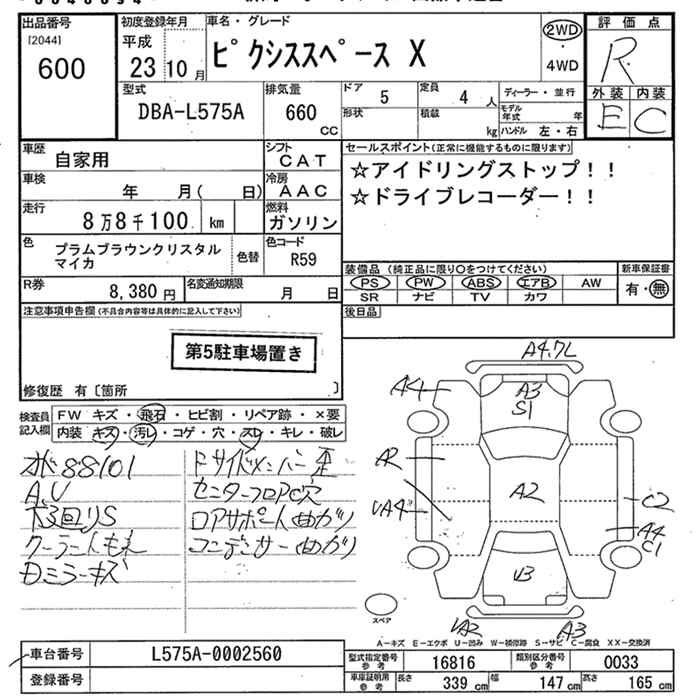 出品番号
[2044]
600
初度登録年月
平成
23 10 月
車名・グレード
ピクシススペース X
2WD
・
4WD
評価点
R
外装 内装
E C
型式
DBA-L575A
排気量
660
CC
ドア 5
定員 4 人
形状
積載 kg
ディーラー・並行
モデル年式 年
ハンドル 左・右
車歴
自家用
シフト
CAT
車検
年 月( 日)
冷房
AAC
走行
8万8千100 km
燃料
ガソリン
色
プラムブラウンクリスタル
マイカ
色替
色コード
R59
R券
8,380 円
名変通知期限
月 日
セールスポイント(正常に機能するものに限ります)
☆アイドリングストップ!!
☆ドライブレコーダー!!
装備品 (純正品に限り○をつけてください)
PS PW ABS エアB AW
SR ナビ TV カワ
新車保証書
有・無
後日品
注意事項申告欄(不具合内容等は具体的に記入して下さい)
第5駐車場置き
修復歴 有〔箇所 〕
検査員
記入欄
FW キズ・飛石・ヒビ割・リペア跡・×要
内装 キズ・汚レ・コゲ・穴・スレ・キレ・破レ
88101
A,U
下回りS
クーラーニオイ
Dミラーキズ
Fサイドメンバー歪
センターフロアC穴
コアサポート曲ガリ
コンデンサー曲ガリ
A4,7L
A4
A3
S1
AR
A2
UA4
C2
A4
C1
U3
UA2
A3
スペア
A-キズ E-エクボ U-凹み W-補修跡 S-サビ C-腐食 XX-交換済
車台番号
L575A-0002560
登録番号
型式指定番号
参考
16816
類別区分番号
参考
0033
車庫証明用
参考
長さ 339 cm
幅 147 cm
高さ 165 cm